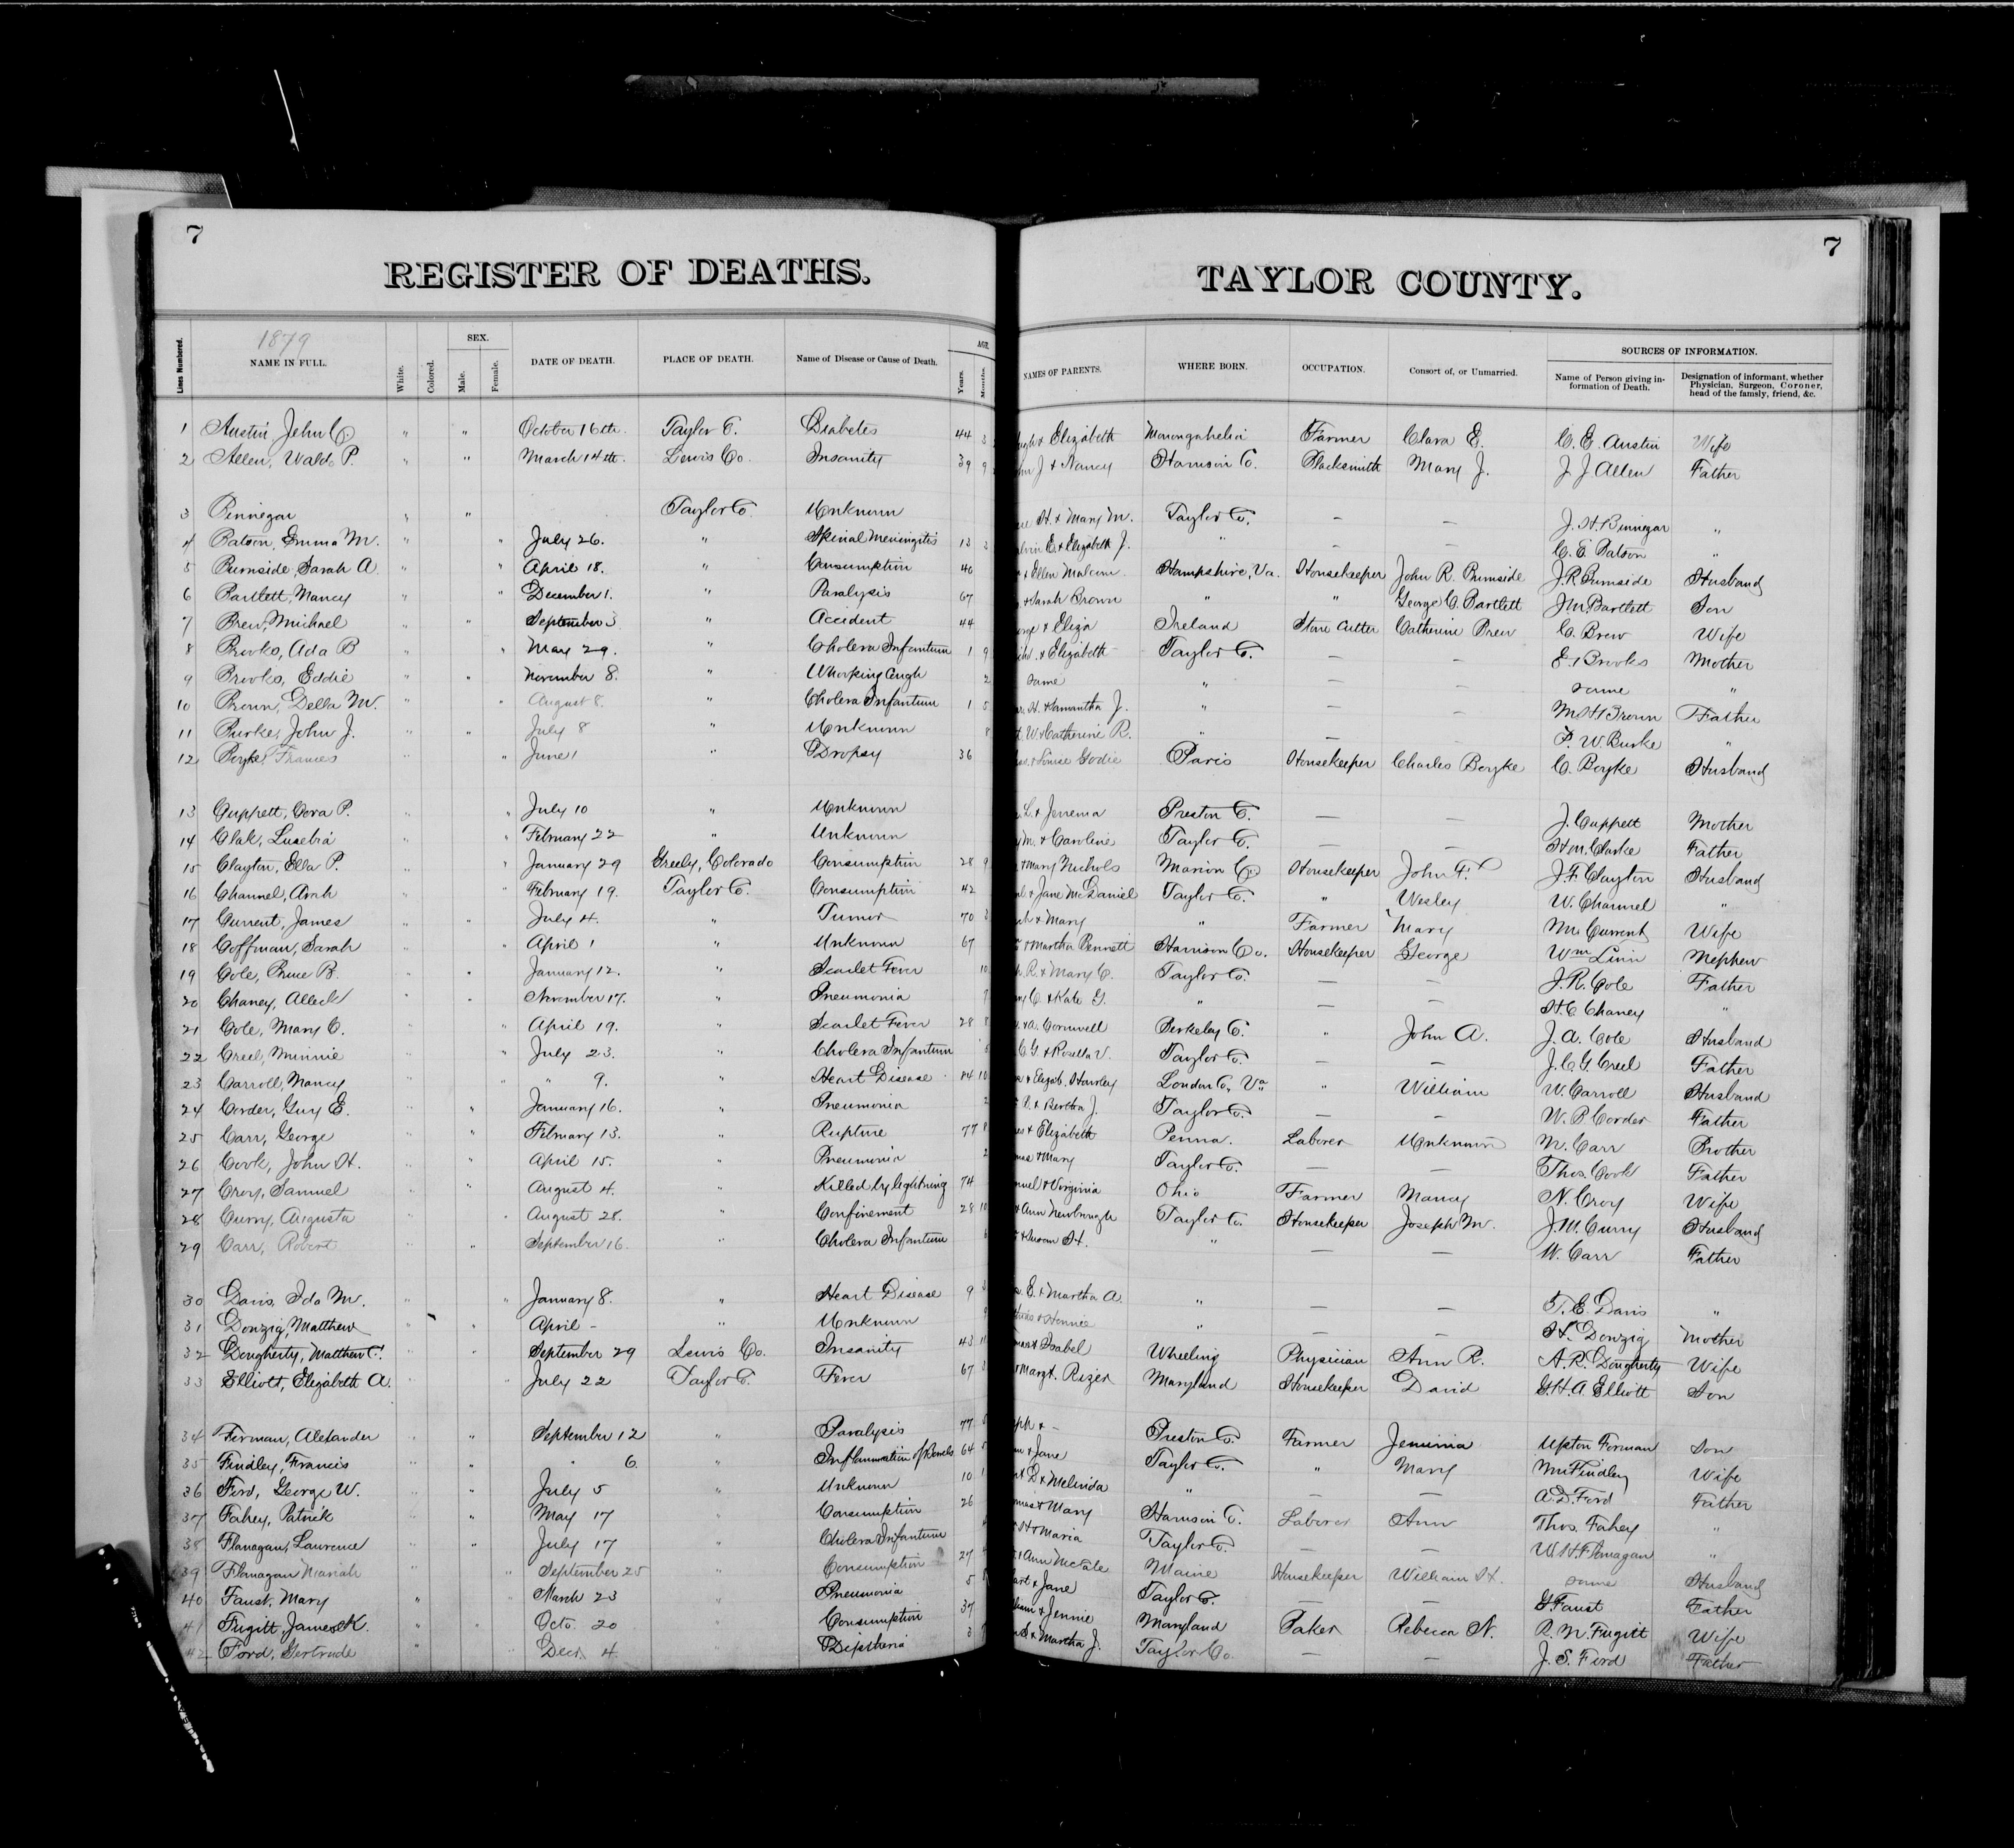 7
7
REGISTER OF DEATHS.
TAYLOR COUNTY.
1879
Lines Numbered. NAME IN FULL. White. Colored. SEX. Male. Female. DATE OF DEATH. PLACE OF DEATH. Name of Disease or Cause of Death. AGE. Years. Months. NAMES OF PARENTS. WHERE BORN. OCCUPATION. Consort of, or Unmarried. SOURCES OF INFORMATION. Name of Person giving information of Death. Designation of informant, whether Physician, Surgeon, Coroner, head of the famsly, friend, &c.
1 Austin, John C. " " October 16th. Taylor C. Diabetes 44 & Elizabeth Monongahelia Farmer Clara E. C. E. Austin Wife
2 Allen, Waldo P. " " March 14th. Lewis Co. Insanity 39 9 J & Nancy Harrison C. Blacksmith Mary J. J J Allen Father
3 Binnegar " " Taylor Co. Unknown H. & Mary M. Taylor Co. — — J. H. Binnegar "
4 Batson, Emma M. " " July 26. " Spinal Meningitis 13 E. & Elizabeth J. " — — C. E. Batson "
5 Burnside, Sarah A. " " April 18. " Consumption 40 & Ellen Malcom Hampshire, Va. Housekeeper John R. Burnside J. R. Burnside Husband
6 Bartlett, Nancy " " December 1. " Paralysis 67 & Sarah Brown " " George C. Bartlett J M Bartlett Son
7 Brew, Michael " " September 3 " Accident 44 & Eliza Ireland Stone Cutter Catherine Brew C. Brew Wife
8 Brooks, Ada B " " May 29. " Cholera Infantum 1 9 & Elizabeth Taylor C. — — E. Brooks Mother
9 Brooks, Eddie " " November 8. " Whooping Cough 2 same " — — same "
10 Brown, Della M. " " August 8. " Cholera Infantum 1 5 H. & Samantha J. " — — M H Brown Father
11 Burke, John J. " " July 8 " Unknown 8 W & Catherine R. " — P. W. Burke "
12 Boyke, Frances " " June 1 " Dropsy 36 & Louise Godie Paris Housekeeper Charles Boyke C. Boyke Husband
13 Cuppett, Cora P. " " July 10 " Unknown L. & Jerrema Preston C. — — J. Cuppett Mother
14 Clak, Lusebia " " February 22 " Unknown M. & Caroline Taylor C. — — H M. Clarke Father
15 Clayton, Ella P. " " January 29 Greely, Colorado Consumption 28 9 & Mary Nichols Marion Co. Housekeeper John F. J. F Clayton Husband
16 Channel, Arah " " February 19. Taylor Co. Consumption 42 & Jane McDaniel Taylor C. " Wesley W. Channel "
17 Current, James " " July 4. " Tumor 70 & Mary " Farmer Mary M. Current Wife
18 Coffman, Sarah " " April 1 " Unknown 67 & Martha Bennett Harrison Co. Housekeeper George Wm Linn Nephew
19 Cole, Bruce B. " " January 12. " Scarlet Fever 10 R. & Mary C. Taylor Co. — — J. R. Cole Father
20 Chaney, " " November 17. " Pneumonia C. & Kate G. " — — H. C Chaney "
21 Cole, Mary C. " " April 19. " Scarlet Fever 28 8 & A. Cornwell Berkeley C. " John A. J. A. Cole Husband
22 Creel, Minnie " " July 23. " Cholera Infantum C. G & Rosella V. Taylor Co. — — J. C. G. Creel Father
23 Carroll, Nancy " " " 9. " Heart Disease 84 10 & Elizab. Hensley London Co, Va " William W. Carroll Husband
24 Corder, Guy E. " " January 16. " Pneumonia 2 P. & Bertha J. Taylor Co. — — W. P. Corder Father
25 Carr, George " " February 13. " Rupture 77 8 & Elizabeth Penna. Laborer Unknown M. Carr Brother
26 Cook, John H. " " April 15. " Pneumonia 2 & Mary Taylor Co. — — Thos. Cook Father
27 Croy, Samuel " " August 4. " Killed by lightning 74 & Virginia Ohio Farmer Nancy N. Croy Wife
28 Curry, Augusta " " August 28. " Confinement 28 10 & Ann Newbrough Taylor Co. Housekeeper Joseph M. J. M. Curry Husband
29 Carr, Robert " " September 16. " Cholera Infantum & Susan H. " — — W. Carr Father
30 Davis, Ida M. " " January 8. " Heart Disease 9 E. & Martha A. " — — T. E. Davis "
31 Donzig, Matthew " " April — " Unknown & Hennie " — — H. Donzig Mother
32 Dougherty, Matthew C. " " September 29 Lewis Co. Insanity 43 11 & Isabel Wheeling Physician Ann R. A. R. Dougherty Wife
33 Elliott, Elizabeth A. " " July 22 Taylor C. Fever 67 & Margt. Rizer Maryland Housekeeper David G. H. A. Elliott Son
34 Forman, Alexander " " September 12 " Paralysis 77 & — Preston C. Farmer Jemima Upton Forman Son
35 Findley, Francis " " " 6 " Inflammation of Bowels 64 & Jane Taylor Co. " Mary M Findley Wife
36 Ford, George W. " " July 5 " Unknown 10 D. & Melinda " — — A. D. Ford Father
37 Fahey, Patrick " " May 17 " Consumption 26 & Mary Harrison C. Laborer Ann Thos. Fahey "
38 Flanagan, Laurence " " July 17 " Cholera Infantum H & Maria Taylor Co. — — W. H Flanagan "
39 Flanagan Mariah " " September 25 " Consumption 27 & Ann McCale Maine Housekeeper William H. same Husband
40 Faust, Mary " " March 23 " Pneumonia 5 & Jane Taylor C. — — G Faust Father
41 Fugitt, James K. " " Octo. 20 " Consumption 37 & Jennie Maryland Baker Rebecca N. R. N. Fugitt Wife
42 Ford, Gertrude " " Decr. 4. " Diptheria 3 & Martha J. Taylor Co. — — J. S. Ford Father